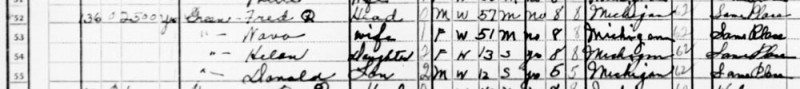 52 136 O 2500 yes Green - Fred R Head 0 M W 57 M no 8 8 Michigan 62 Same Place
53 " - Nava wife 1 F W 51 M no 8 8 Michigan 62 Same Place
54 " - Helen Daughter 2 F W 13 S yes 8 8 Michigan 62 Same Place
55 " - Donald Son 2 M W 12 S yes 5 5 Michigan 62 Same Place